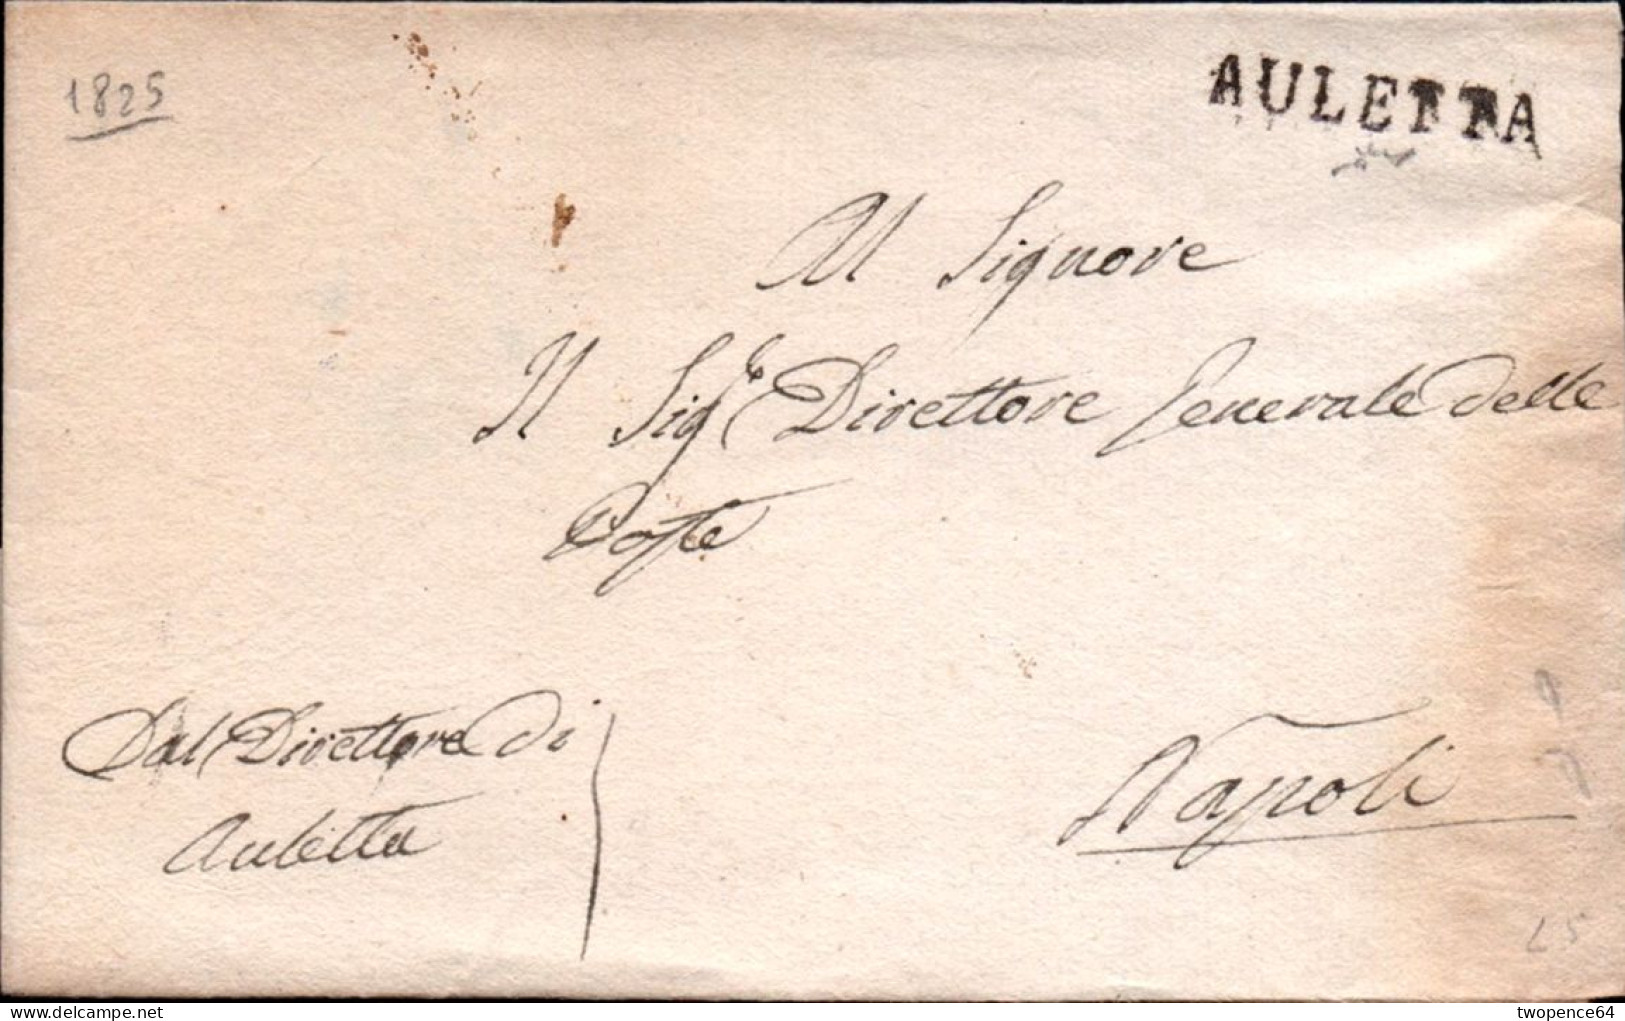 1825
AULETTA
Al Signore
Il Sig.e Direttore Generale delle
Poste
Dal Direttore di
Auletta
Napoli
L5
www.delcampe.net
twopence64